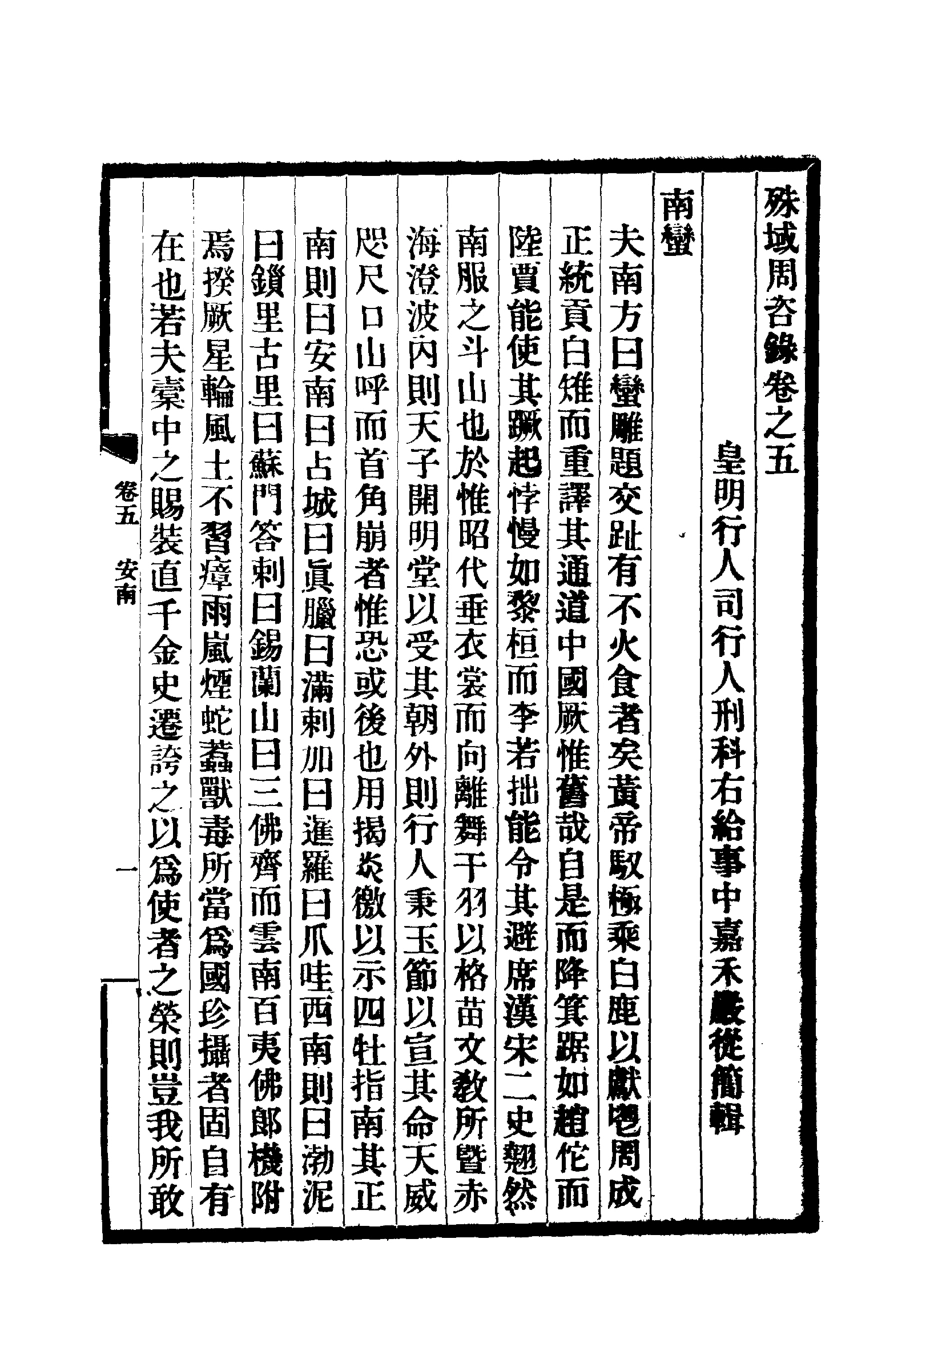 殊域周咨錄卷之五
皇明行人司行人刑科右給事中嘉禾嚴從簡輯
南蠻
夫南方曰蠻雕題交趾有不火食者矣黃帝馭極乘白鹿以獻鬯周成
正統貢白雉而重譯其通道中國厥惟舊哉自是而降箕踞如趙佗而
陸賈能使其蹶起悖慢如黎桓而李若拙能令其避席漢宋二史翹然
南服之斗山也於惟昭代垂衣裳而向離舞干羽以格苗文敎所曁赤
海澄波內則天子開明堂以受其朝外則行人秉玉節以宣其命天威
咫尺口山呼而首角崩者惟恐或後也用揭炎徼以示四牡指南其正
南則曰安南曰占城曰眞臘曰滿剌加曰暹羅曰爪哇西南則曰渤泥
曰鎖里古里曰蘇門答剌曰錫蘭山曰三佛齊而雲南百夷佛郎機附
焉揆厥星輪風土不習瘴雨嵐煙蛇蠚獸毒所當爲國珍攝者固自有
在也若夫橐中之賜裝直千金史遷誇之以爲使者之榮則豈我所敢
卷五 安南
一